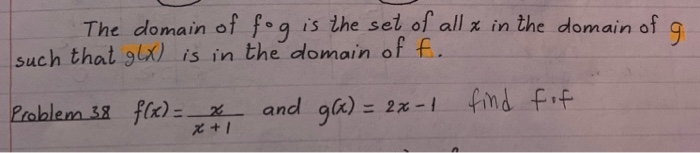 The domain of f∘g is the set of all x in the domain of g
such that g(x) is in the domain of f.
Problem 38 f(x) = x/(x+1) and g(x) = 2x-1 find f∘f